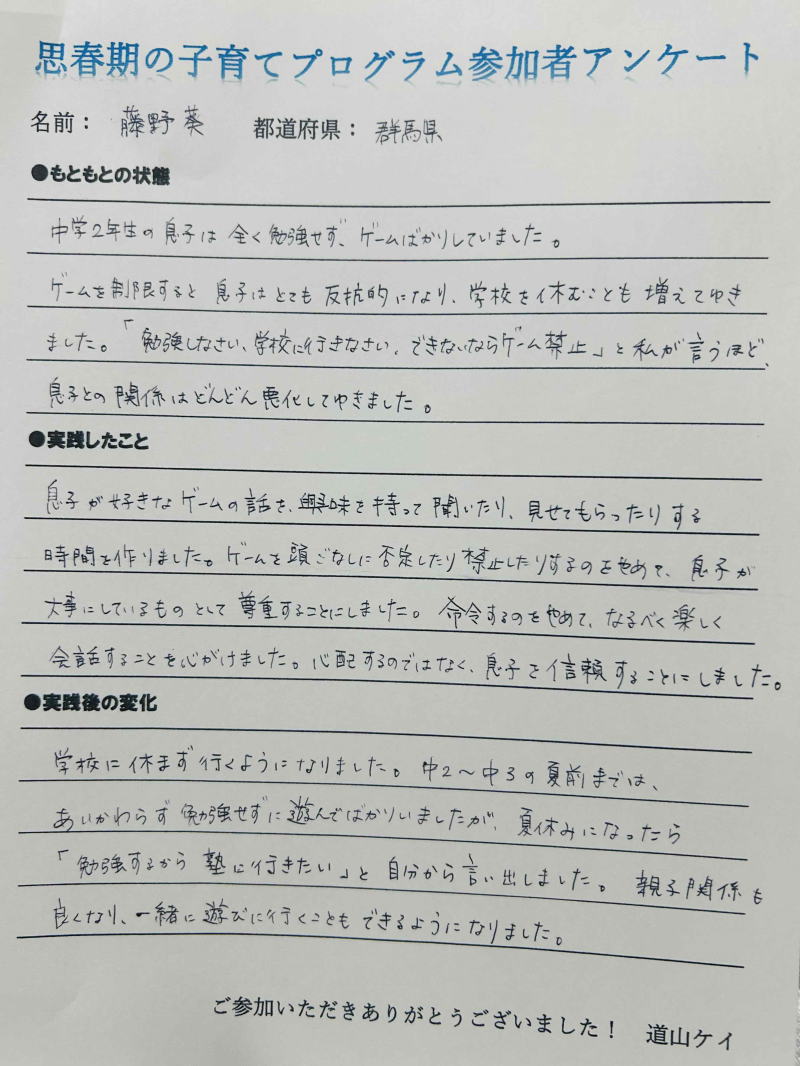 思春期の子育てプログラム参加者アンケート
名前： 藤野 葵 都道府県： 群馬県
●もともとの状態
中学2年生の息子は 全く勉強せず、ゲームばかりしていました。
ゲームを制限すると 息子はとても 反抗的になり、学校を休むことも 増えてゆき
ました。「勉強しなさい、学校に行きなさい、できないならゲーム禁止」と私が言うほど、
息子との関係はどんどん悪化してゆきました。
●実践したこと
息子が好きなゲームの話を、興味を持って聞いたり、見せてもらったりする
時間を作りました。ゲームを頭ごなしに否定したり禁止したりするのをやめて、息子が
大事にしているものとして尊重することにしました。命令するのをやめて、なるべく楽しく
会話することを心がけました。心配するのではなく、息子を信頼することにしました。
●実践後の変化
学校に休まず行くようになりました。中2〜中3の夏前までは、
あいかわらず勉強せずに遊んでばかりいましたが、夏休みになったら
「勉強するから 塾に行きたい」と自分から言い出しました。 親子関係も
良くなり、一緒に遊びに行くこともできるようになりました。
ご参加いただきありがとうございました！ 道山ケイ